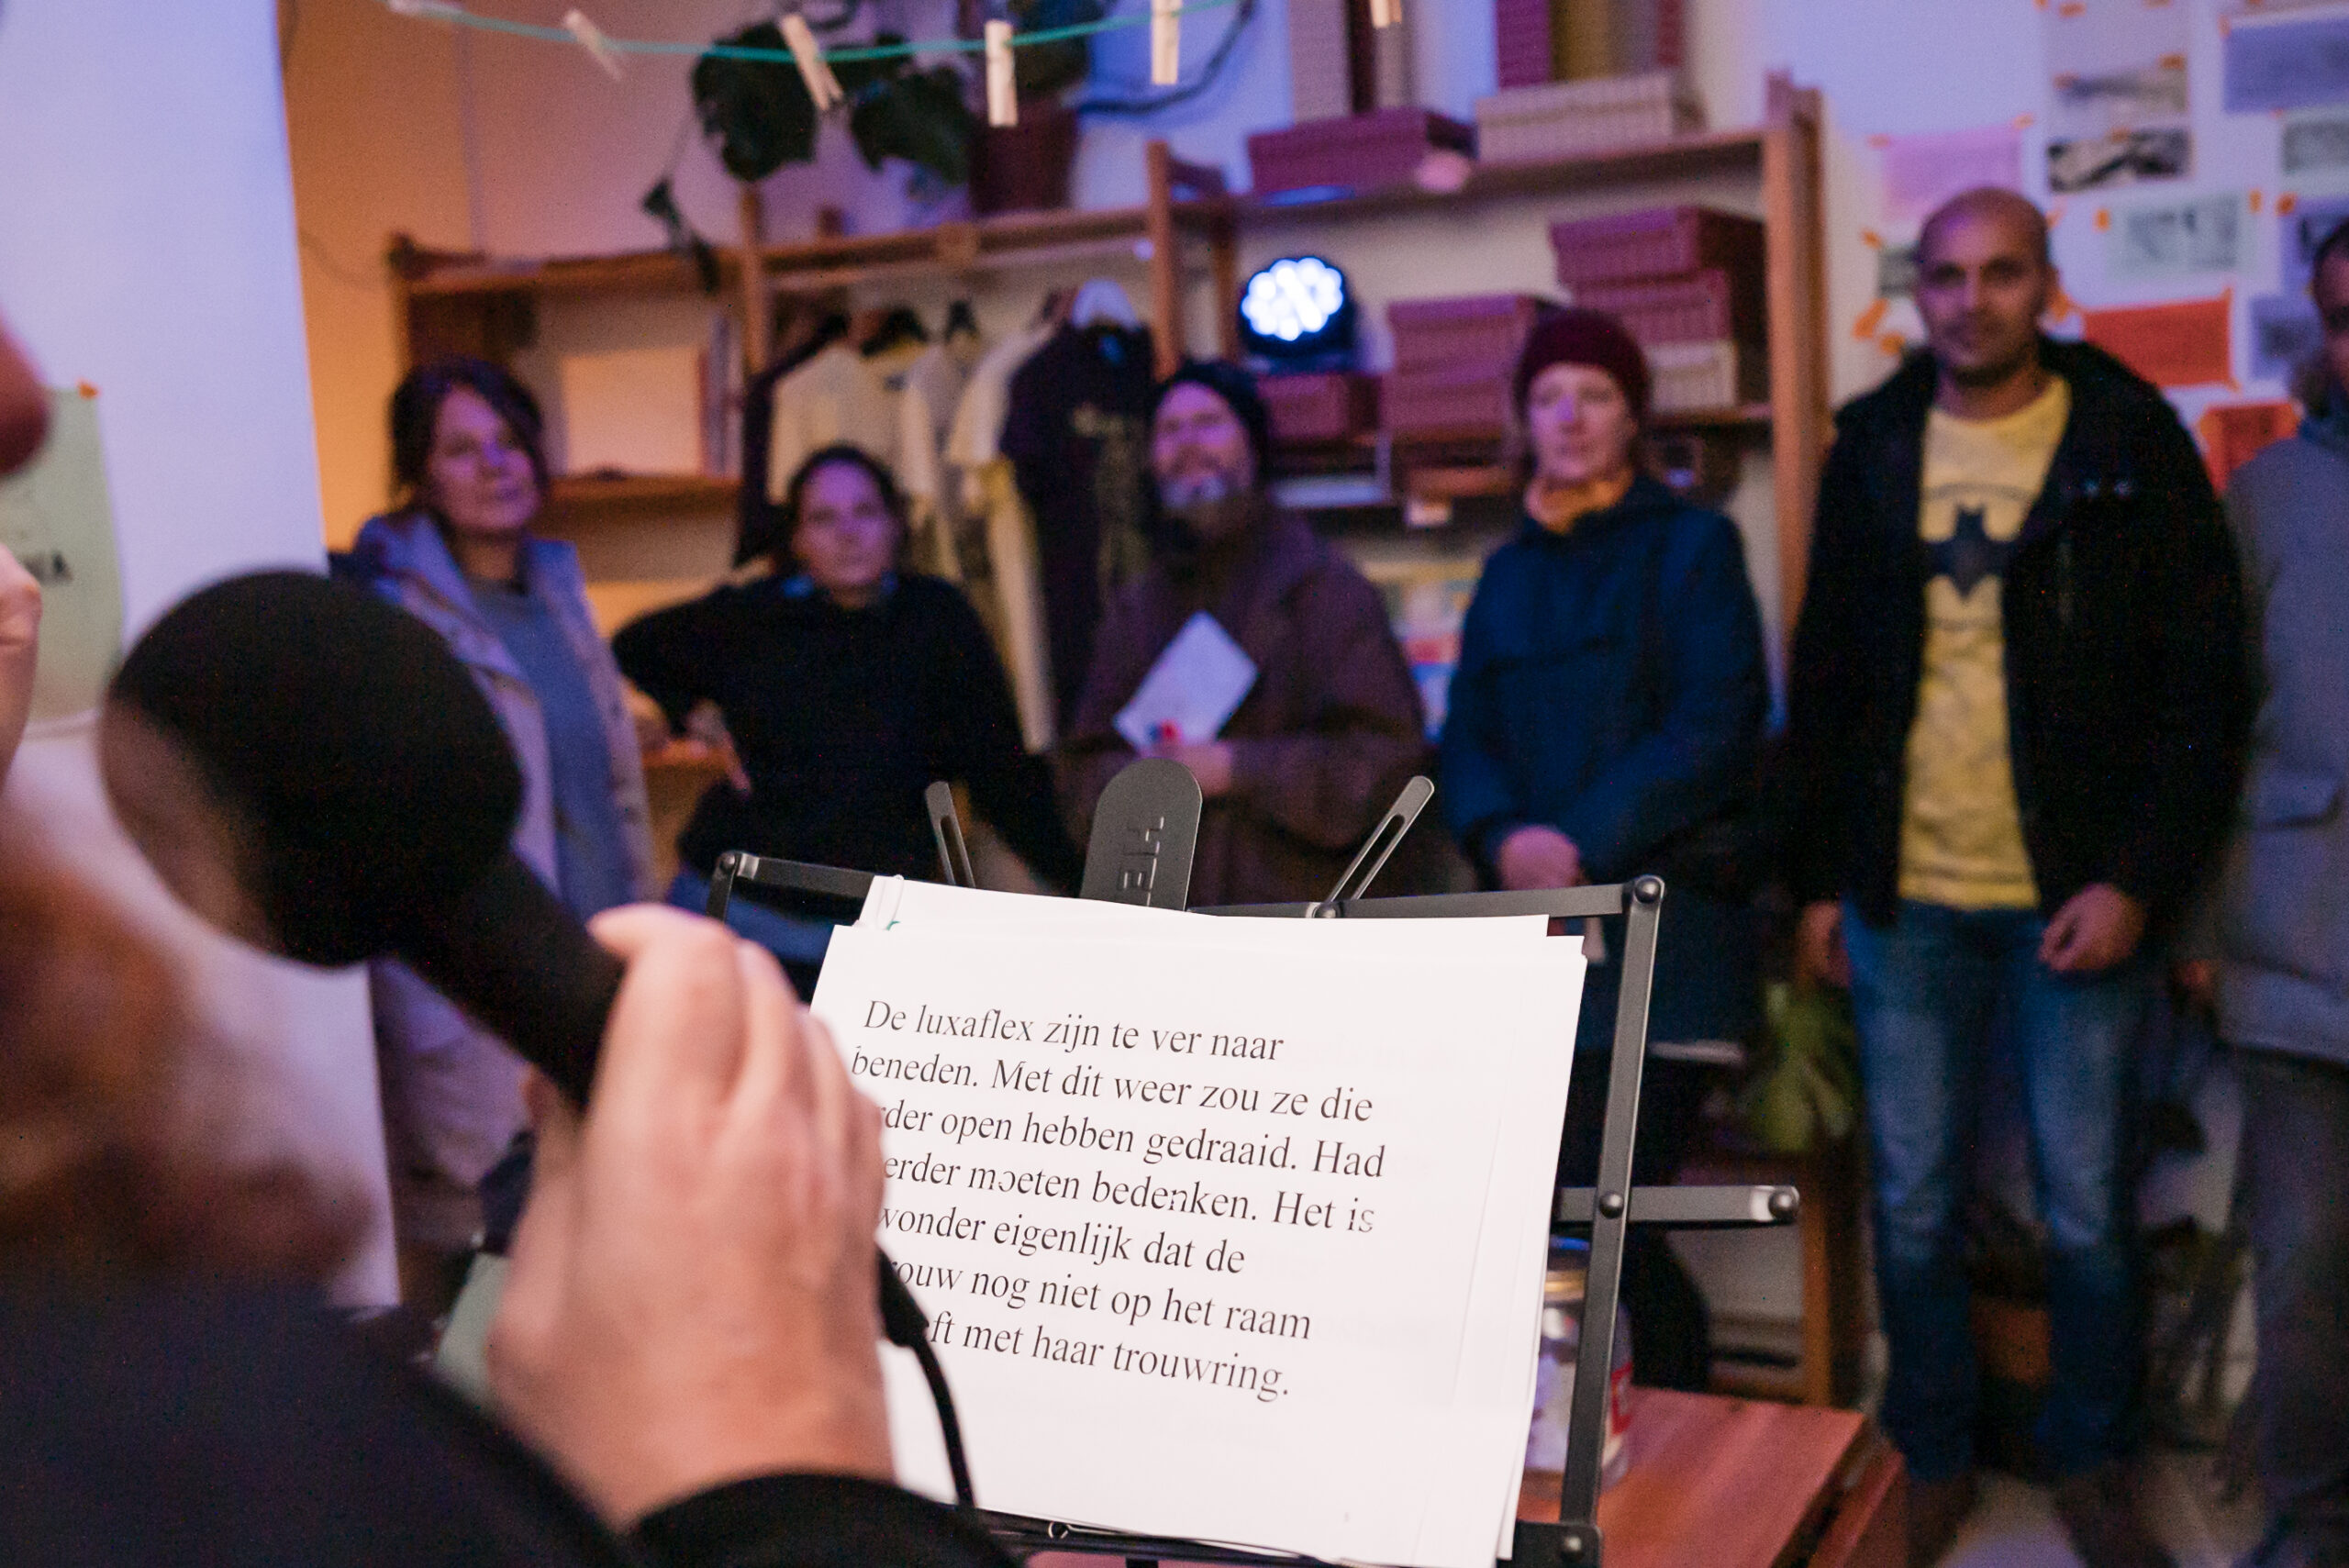 De luxaflex zijn te ver naar
beneden. Met dit weer zou ze die
rder open hebben gedraaid. Had
erder moeten bedenken. Het is
wonder eigenlijk dat de
rouw nog niet op het raam
ft met haar trouwring.